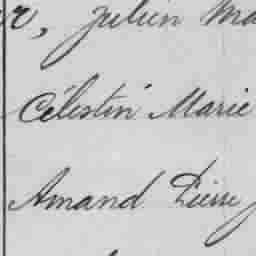 r, Julien Ma
Célestin Marie
Amand Pierre